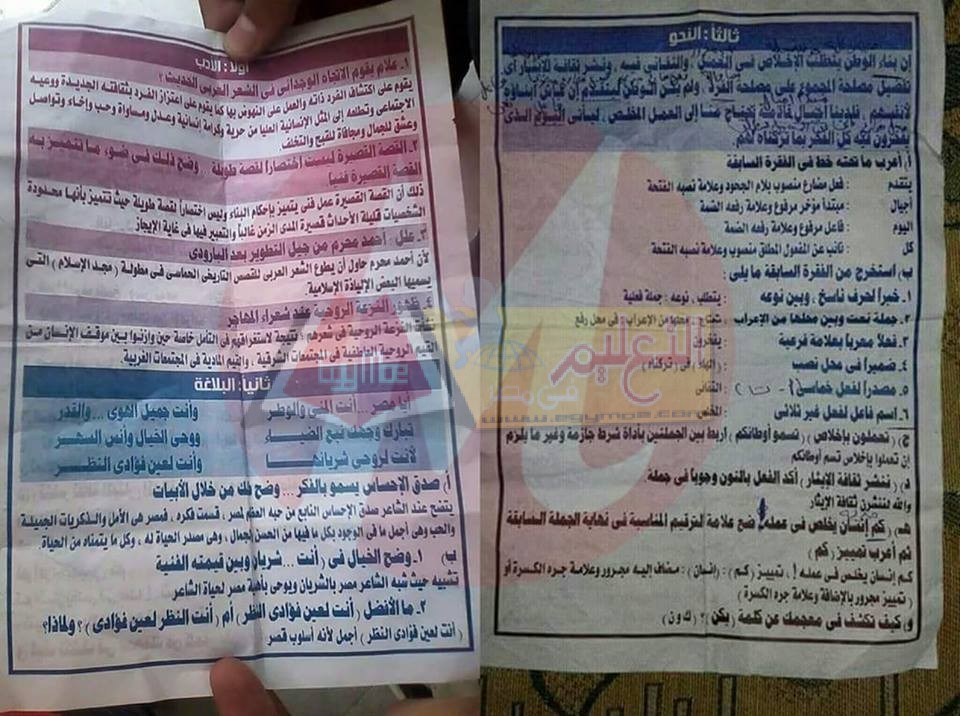 أولا : الأدب
١ـ علام يقوم الاتجاه الوجدانى فى الشعر العربى الحديث ؟
يقوم على اكتشاف الفرد ذاته والعمل على النهوض بها كما يقوم على اعتزاز الفرد بثقافته الجديدة ووعيه
الاجتماعى وتطلعه إلى المثل الإنسانية العليا من حرية وكرامة إنسانية وعدل ومساواة وحب وإخاء وتواصل
وعشق للجمال ومجافاة للقبح والتخلف
٢ـ القصة القصيرة ليست اختصاراً لقصة طويلة . وضح ذلك فى ضوء ما تتميز به
القصة القصيرة فنياً
ذلك أن القصة القصيرة عمل فنى يتميز بإحكام البناء وليس اختصاراً لقصة طويلة حيث تتميز بأنها محدودة
الشخصيات قليلة الأحداث قصيرة المدى الزمن غالباً والتعبير فيها فى غاية الإيجاز
٣ـ علل : أحمد محرم من جيل التطوير بعد البارودى
لأن أحمد محرم حاول أن يطوع الشعر العربى للقصص التاريخى الحماسى فى مطولة ( مجد الإسلام ) التى
يسميها البعض الإلياذة الإسلامية
٤ـ ظهور النزعة الروحية عند شعراء المهاجر
نشأت النزعة الروحية فى شعرهم نتيجة لاستغراقهم فى التأمل خاصة حين وازنوا بين موقف الإنسان من
القيم الروحية العاطفية فى المجتمعات الشرقية . والقيم المادية فى المجتمعات الغربية .
ثانيا : البلاغة
أيا مصر ... أنت المنى والوطر وأنت جميل الهوى ... والقدر
تبارك وجهك نبع الضياء ووحى الخيال وأنس السهر
لأنت لروحى شريانها وأنت لعين فؤادى النظر
أ) صدق الإحساس يسمو بالفكر ... وضح ذلك من خلال الأبيات
يتضح عند الشاعر صدق الإحساس النابع من حبه العظيم لمصر . فسمت فكره . فمصر هى الأمل والذكريات الجميلة
والحب وهى أجمل ما فى الوجود بكل ما فيها من الحسن والجمال ، وهى مصدر الحياة له ، وكل ما يتمناه من الحياة.
ب) ١ـ وضح الخيال فى ( أنت ... شريان وبين قيمته الفنية
تشبيه حيث شبه الشاعر مصر بالشريان ويوحى بأهمية مصر لحياة الشاعر
٢ـ ما الأفضل ( أنت لعين فؤادى النظر ) أم ( أنت النظر لعين فؤادى ) ؟ ولماذا؟
( أنت لعين فؤادى النظر ) أجمل لأنه أسلوب قصر
ثالثا : النحو
إن بناء الوطن يتطلب الإخلاص فى العمل والتفانى فيه . ونشر ثقافة الإيثار أى
تفضيل مصلحة المجموع على مصلحة الفرد . ولم يكن الوطن ليتقدم إن
لأنفسهم . فلدينا أجيال قادمة تحتاج منا إلى العمل المخلص . سيأتى اليوم الذى
يفخرون فيه كل الفخر بما تركناه لهم .
أ. أعرب ما تحته خط فى الفقرة السابقة
يتقدم : فعل مضارع منصوب بلام الجحود وعلامة نصبه الفتحة
أجيال : مبتدأ مؤخر مرفوع وعلامة رفعه الضمة
اليوم : فاعل مرفوع وعلامة رفعه الضمة
كل : نائب عن المفعول المطلق منصوب وعلامة نصبه الفتحة
ب. استخرج من الفقرة السابقة ما يلى :
١. خبراً لحرف ناسخ . وبين نوعه : يتطلب . نوعه : جملة فعلية
٢. جملة نعت وبين محلها من الإعراب : تحتاج . محلها من الإعراب : فى محل رفع
٣. فعلاً معرباً بعلامة فرعية : يفخرون
٤. ضميراً فى محل نصب : (الهاء) فى ( تركناه )
٥. مصدراً لفعل خماسى : التفانى
٦. اسم فاعل لفعل غير ثلاثى : المخلص
ج) ( تعملون بإخلاص ) ( تسمو أوطانكم ) اربط بين الجملتين بأداة شرط جازمة وغير ما يلزم
إن تعملوا بإخلاص تسم أوطانكم
د) ( ننشر ثقافة الإيثار ) أكد الفعل بالنون وجوباً فى جملة
والله لننشرن ثقافة الإيثار
هـ) ( كم إنسان يخلص فى عمله ) ضع علامة الترقيم المناسبة فى نهاية الجملة السابقة
ثم أعرب تمييز ( كم )
كم إنسان يخلص فى عمله ! . تمييز ( كم ) : ( إنسان ) : مضاف إليه مجرور وعلامة جره الكسرة أو
( تمييز مجرور بالإضافة وعلامة جره الكسرة )
و) كيف تكشف فى معجمك عن كلمة ( يكن ) ؟ ( ك و ن )
التعليم
فى مصر
www.egymoe.com